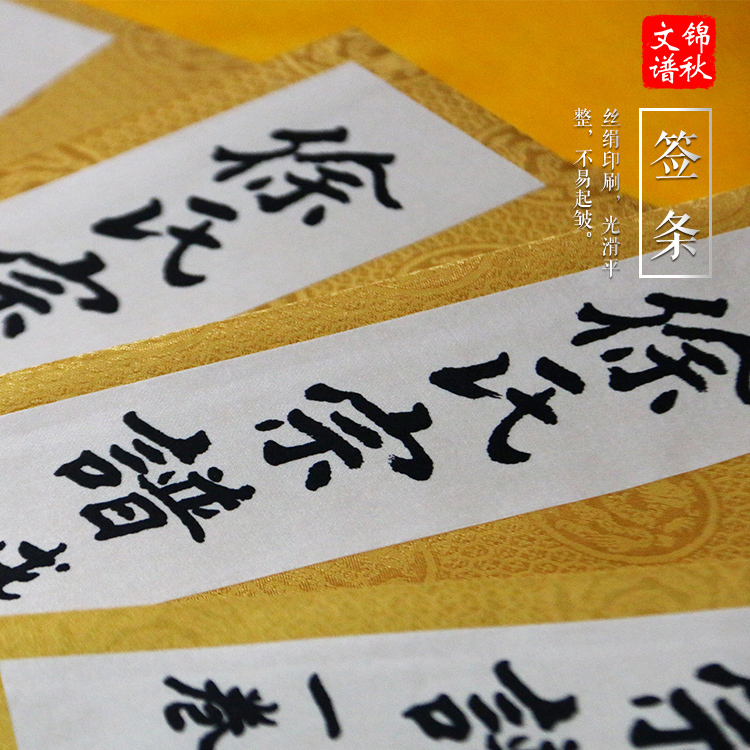 锦秋
文谱
签条
丝绢印刷，光滑平
整，不易起皱。
徐氏宗
徐氏宗譜
宗譜一卷